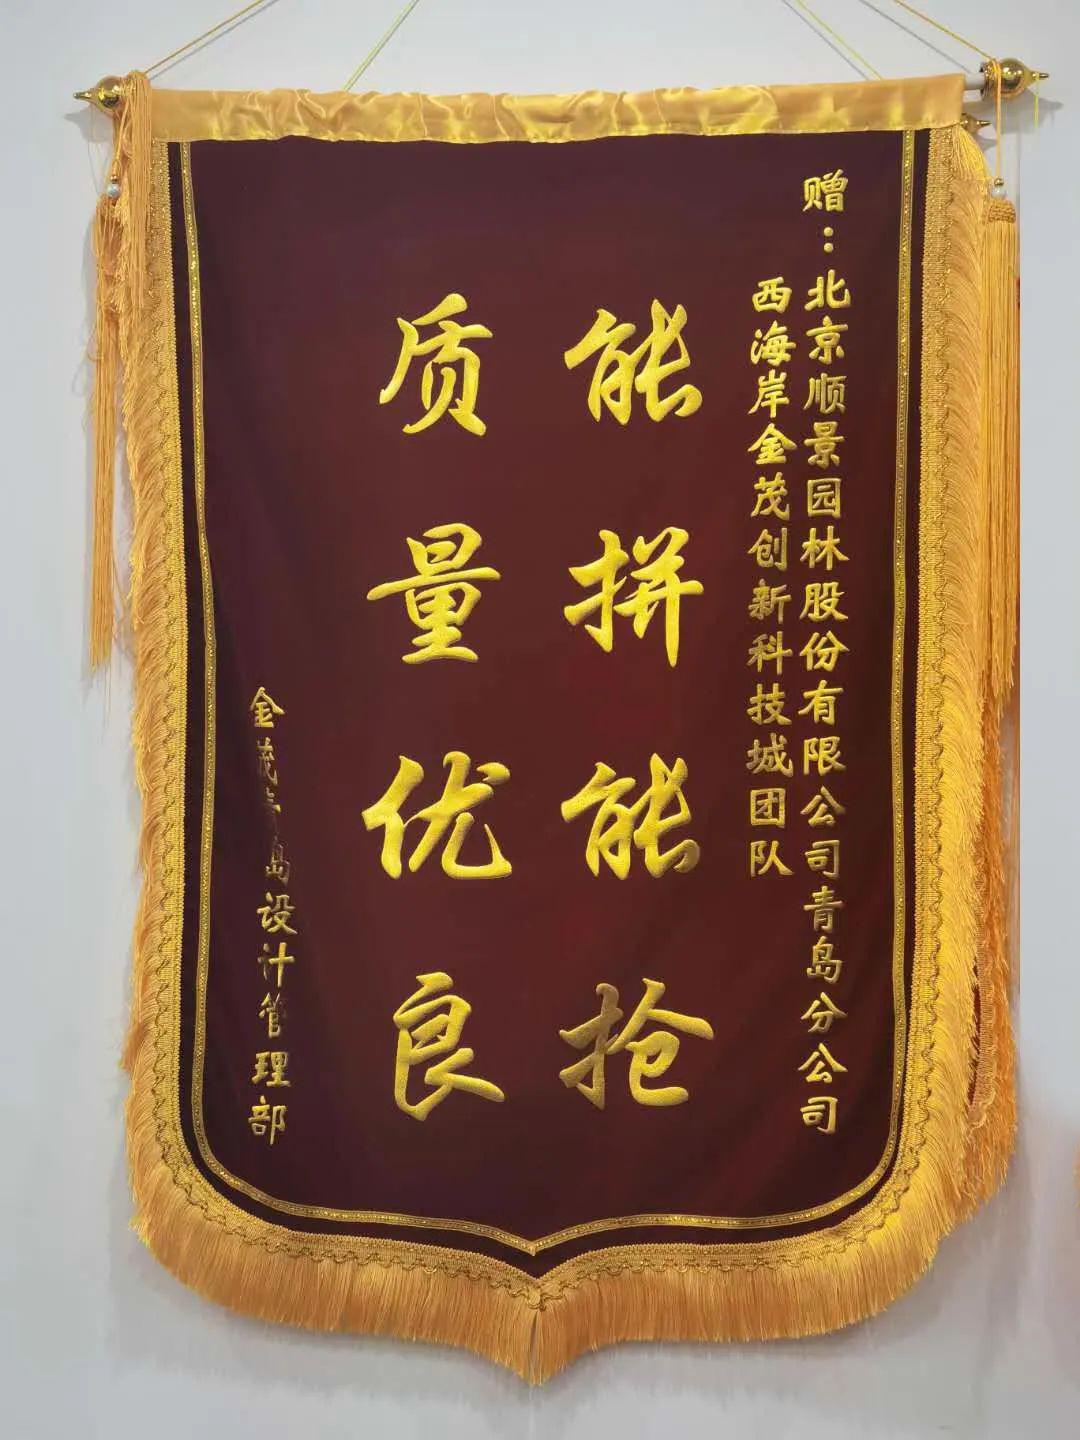 赠：北京顺景园林股份有限公司青岛分公司
西海岸金茂创新科技城团队
能拼能抢
质量优良
金茂青岛设计管理部